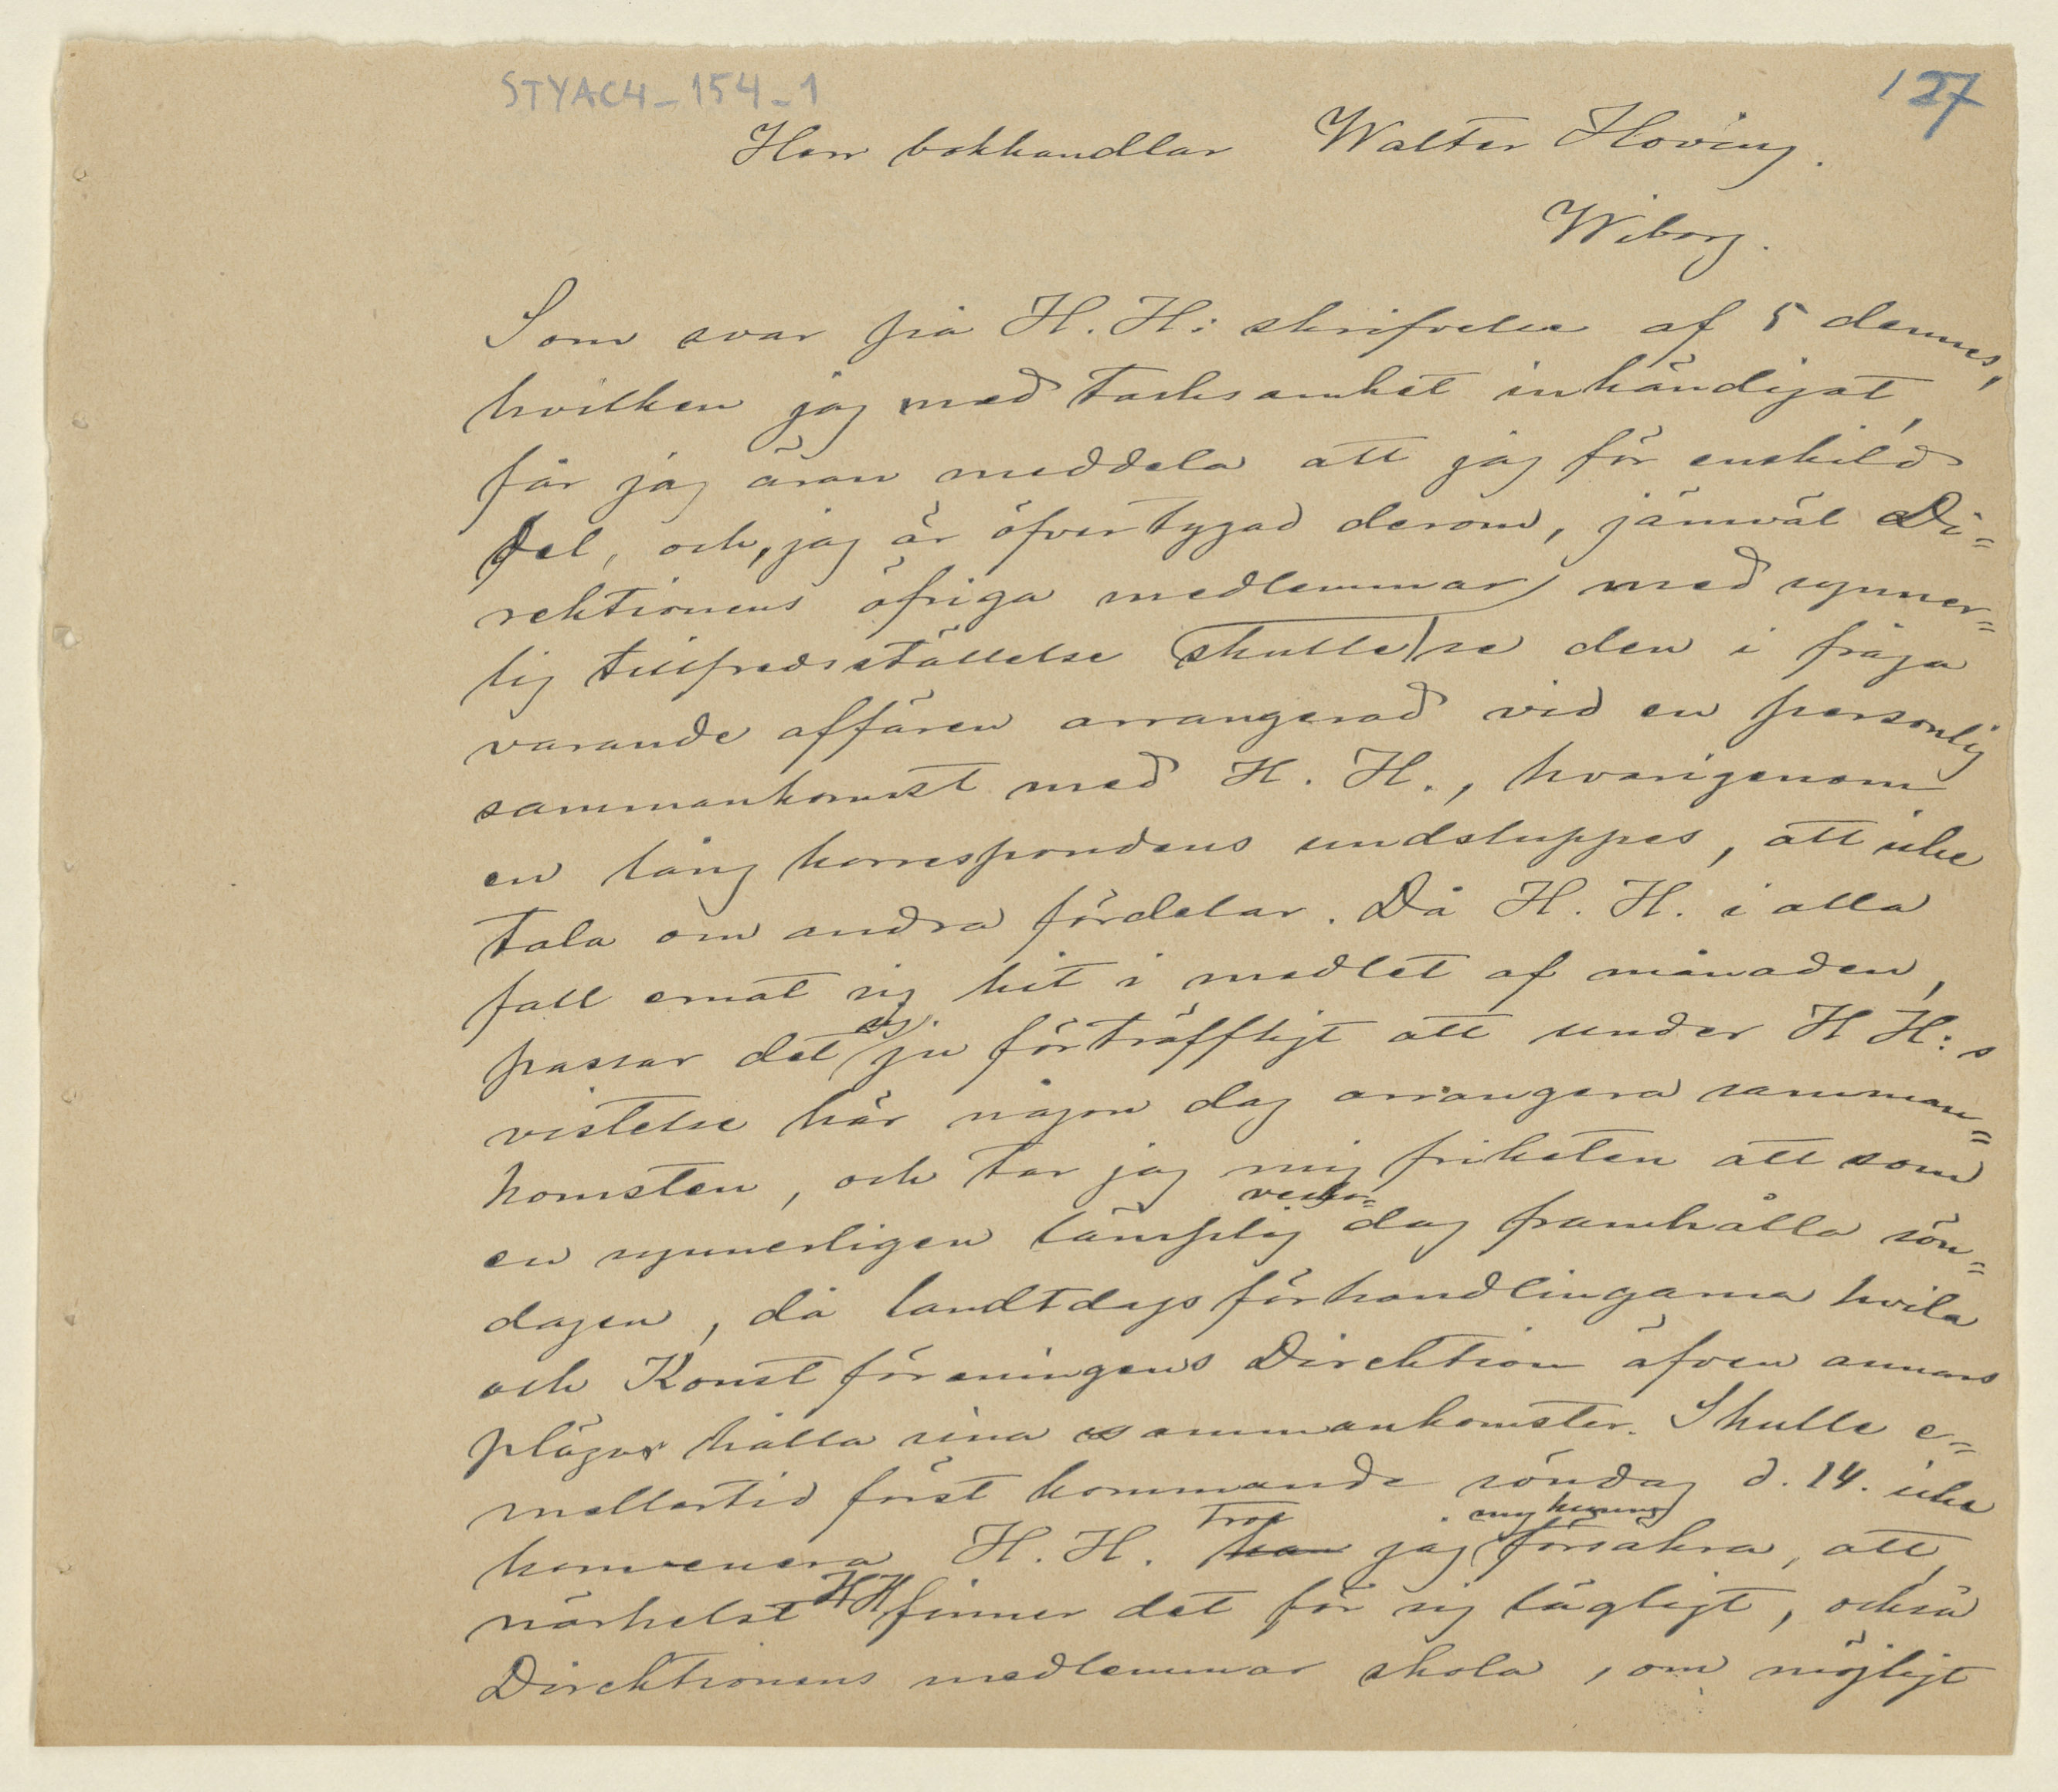 STYAC4_154_1
127
Herr bokhandlar Walter Hoving.
Wiborg.
Som svar på H. H: skrifvelse af 5 dennes,
hvilken jag med tacksamhet inhändigat,
får jag äran meddela att jag för enskild
del, och, jag är öfvertygad derom, jämväl Di=
rektionens öfriga medlemmar med synner=
lig tillfredsställelse skulle se den i fråga
varande affären arrangerad vid en personlig
sammankomst med H. H., hvarigenom
en lång korrespondens undsluppes, att icke
tala om andra fördelar. Då H. H. i alla
fall ernat sig hit i medlet af månaden,
passar det ju förträffligt att under H H:s
vistelse här någon dag arrangera samman=
komsten, och tar jag mig friheten att som
en synnerligen lämplig vecko=dag framhålla sön=
dagen, då landtdagsförhandlingarna hvila
och Konstföreningens Direktion äfven annars
plägar hålla sina sammankomster. Skulle e=
mellertid först kommande söndag d. 14. icke
konvenera H. H. kan tror jag mig kunna försäkra, att,
närhelst HH finner det för sig lägligt, också
Direktionens medlemmar skola, om möjligt